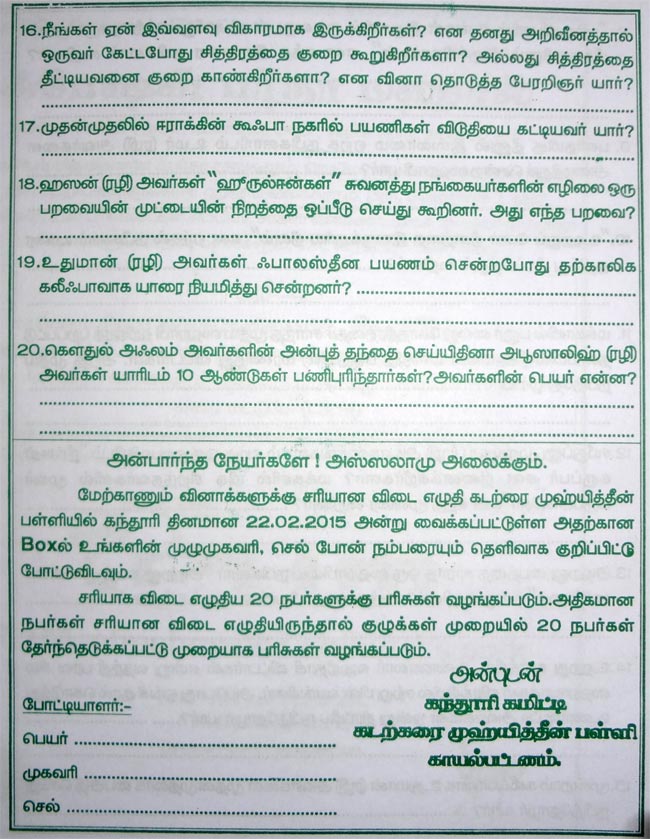 16.நீங்கள் ஏன் இவ்வளவு விகாரமாக இருக்கிறீர்கள்? என தனது அறிவீனத்தால்
ஒருவர் கேட்டபோது சித்திரத்தை குறை கூறுகிறீர்களா? அல்லது சித்திரத்தை
தீட்டியவனை குறை காண்கிறீர்களா? என வினா தொடுத்த பேரறிஞர் யார்?
17.முதன்முதலில் ஈராக்கின் கூஃபா நகரில் பயணிகள் விடுதியை கட்டியவர் யார்?
18.ஹஸன் (ரழி) அவர்கள் "ஹூருல்ஈன்கள்" சுவனத்து நங்கையர்களின் எழிலை ஒரு
பறவையின் முட்டையின் நிறத்தை ஒப்பீடு செய்து கூறினர். அது எந்த பறவை?
19.உதுமான் (ரழி) அவர்கள் ஃபாலஸ்தீன பயணம் சென்றபோது தற்காலிக
கலீஃபாவாக யாரை நியமித்து சென்றனர்?
20.கௌதுல் அஃலம் அவர்களின் அன்புத் தந்தை செய்யிதினா அபூஸாலிஹ் (ரழி)
அவர்கள் யாரிடம் 10 ஆண்டுகள் பணிபுரிந்தார்கள்?அவர்களின் பெயர் என்ன?
அன்பார்ந்த நேயர்களே ! அஸ்ஸலாமு அலைக்கும்.
மேற்காணும் வினாக்களுக்கு சரியான விடை எழுதி கடற்ரை முஹ்யித்தீன்
பள்ளியில் கந்தூரி தினமான 22.02.2015 அன்று வைக்கப்பட்டுள்ள அதற்கான
Boxல் உங்களின் முழுமுகவரி, செல் போன் நம்பரையும் தெளிவாக குறிப்பிட்டு
போட்டுவிடவும்.
சரியாக விடை எழுதிய 20 நபர்களுக்கு பரிசுகள் வழங்கப்படும்.அதிகமான
நபர்கள் சரியான விடை எழுதியிருந்தால் குழுக்கள் முறையில் 20 நபர்கள்
தேர்ந்தெடுக்கப்பட்டு முறையாக பரிசுகள் வழங்கப்படும்.
அன்புடன்
கந்தூரி கமிட்டி
கடற்கரை முஹ்யித்தீன் பள்ளி
காயல்பட்டணம்.
போட்டியாளர்:-
பெயர்
முகவரி
செல்